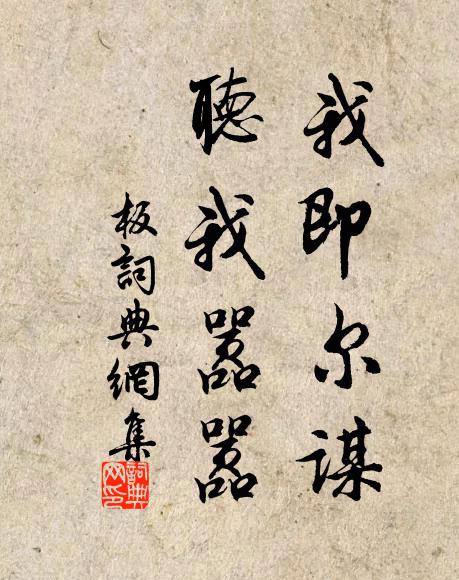 我即尔謀
聽我嚣嚣
板詞典網集
詞典网印